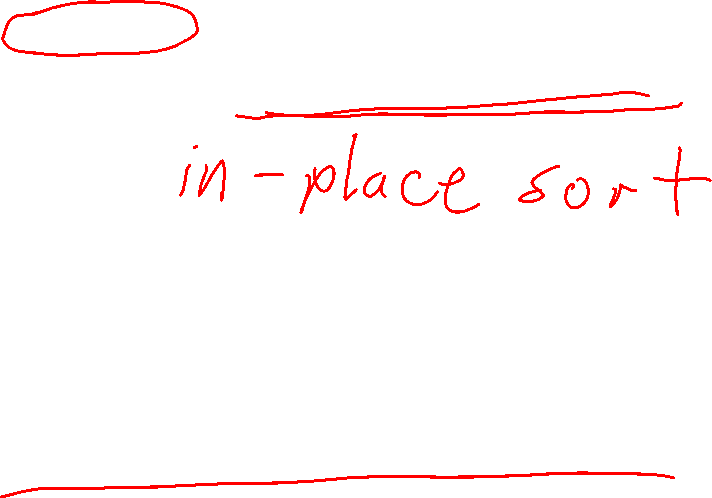 in-place sort